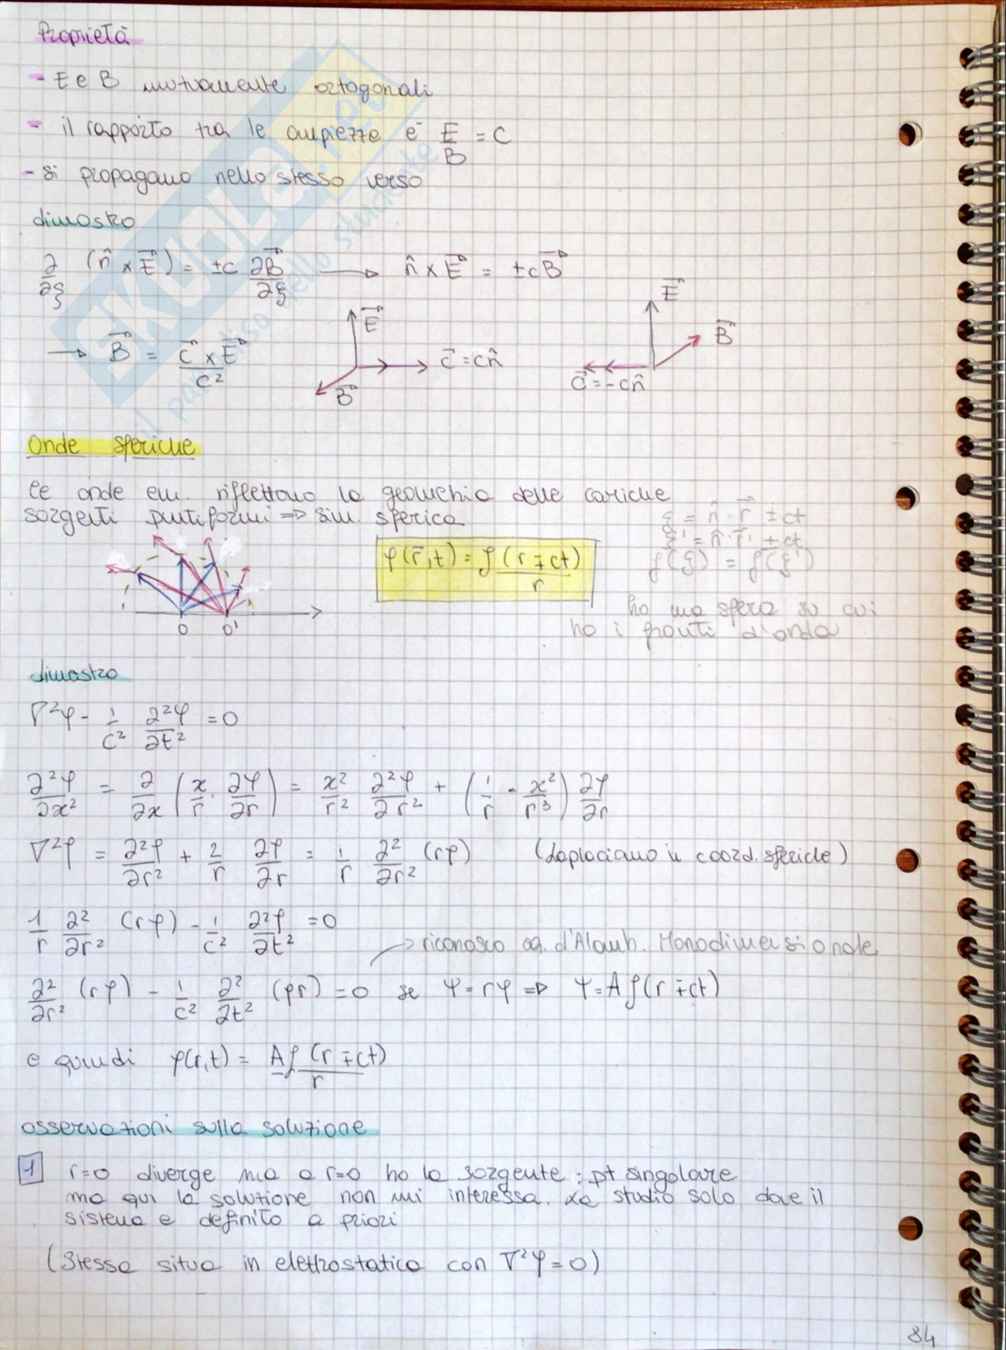 Proprietà
- E e B mutuamente ortogonali
- il rapporto tra le ampiezze è E/B = c
- si propagano nello stesso verso
dimostro
∂/∂ξ (n̂ × E⃗) = ±c ∂B⃗/∂ξ ⟶ n̂ × E⃗ = ±cB⃗
⟶ B⃗ = c⃗ × E⃗ / c²
E⃗ c⃗ = cn̂ B⃗
E⃗ B⃗ c⃗ = -cn̂
Onde sferiche
le onde em. riflettono la geometria delle cariche
sorgenti puntiformi => sim. sferica
ξ = n̂ · r⃗ ± ct
ξ' = n̂ · r⃗' ± ct
f(ξ) = f(ξ')
φ(r⃗,t) = f(r ∓ ct)/r
ho una sfera su cui
ho i fronti d'onda
O O'
dimostro
∇²φ - 1/c² ∂²φ/∂t² = 0
∂²φ/∂x² = ∂/∂x (x/r · ∂φ/∂r) = x²/r² ∂²φ/∂r² + (1/r - x²/r³) ∂φ/∂r
∇²φ = ∂²φ/∂r² + 2/r ∂φ/∂r = 1/r ∂²/∂r² (rφ) (laplaciano in coord. sferiche)
1/r ∂²/∂r² (rφ) - 1/c² ∂²φ/∂t² = 0
→ riconosco eq. d'Alamb. Monodimensionale
∂²/∂r² (rφ) - 1/c² ∂²/∂t² (φr) = 0 se ψ = rφ => ψ = Af(r ∓ ct)
e quindi φ(r,t) = Af(r ∓ ct)/r
osservazioni sulla soluzione
1 r=0 diverge ma a r=0 ho la sorgente: pt singolare
ma qui la soluzione non mi interessa. La studio solo dove il
sistema è definito a priori
(Stessa situa in elettrostatica con ∇²φ=0)
84
SKUOLA.net
il paradiso dello studente